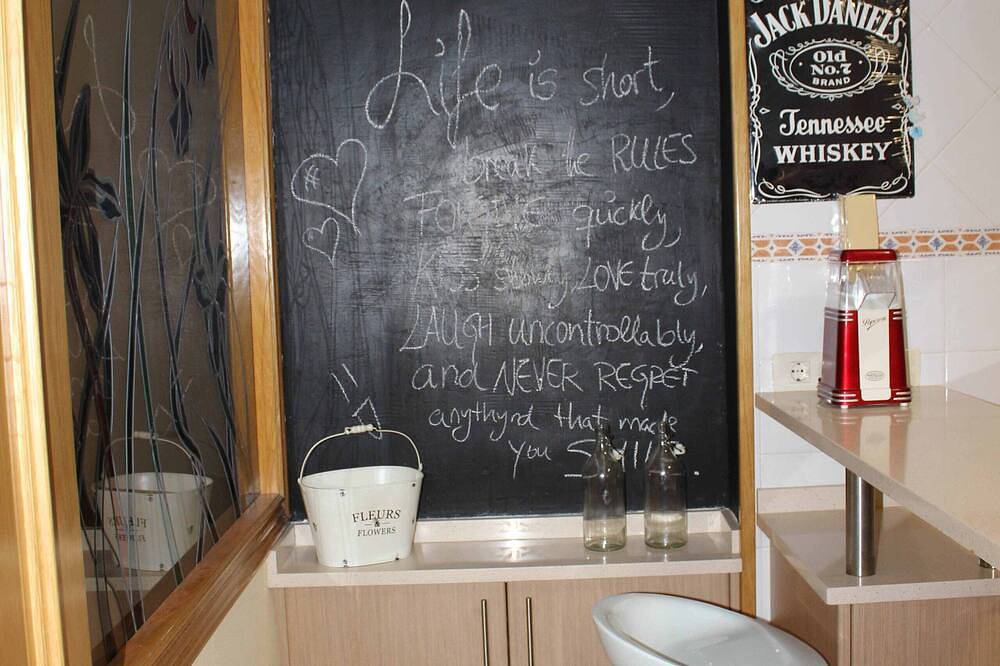 Life is short,
break the RULES
FORGIVE quickly,
Kiss slowly, LOVE truly,
LAUGH uncontrollably,
and NEVER REGRET
anythyng that made
you SMILE.
JACK DANIEL'S
Old
No.7
BRAND
Tennessee
WHISKEY
Popcorn
FLEURS
&
FLOWERS